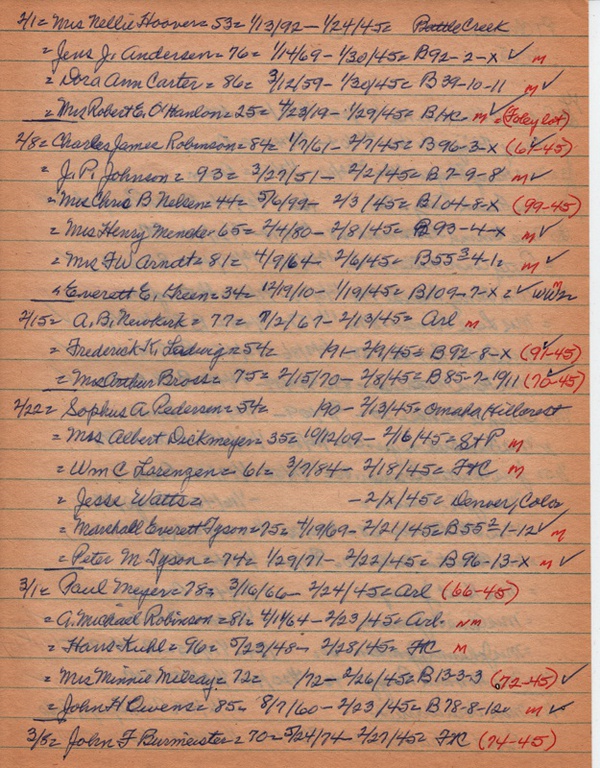 2/1= Mrs Nellie Hoover= 53= 1/13/92 - 1/24/45= Battle Creek
= Jens J. Andersen= 76= 1/14/69 - 1/30/45= B92-2-X ✓ m
= Dora Ann Carter= 86= 3/12/59 - 1/30/45= B39-10-11 m ✓
= Mrs Robert E. O'Hanlon= 25= 4/23/19 - 1/29/45= B HC m ✓ = (Foley lot)
2/8= Charles James Robinson= 84= 1/7/61 - 2/7/45= B96-3-X (61-45)
= J. P. Johnson= 93= 3/27/51 - 2/2/45= B7-9-8 m ✓
= Mrs Chris B Nelsen= 44= 5/6/99 - 2/3/45= B104-8-X (99-45)
= Mrs Henry Mende= 65= 2/4/80 - 2/8/45= B93-4-X m ✓
= Mrs F W Arndt= 81= 4/9/64 - 2/6/45= B55³4-1= m ✓
= Everett E. Green= 34= 12/19/10 - 1/19/45= B109-7-X= ✓ m WW2
2/15= A. B. Newkirk= 77= 7/2/67 - 2/13/45= Arl m
= Frederick K. Ladwig= 54= /91 - 2/9/45= B92-8-X (91-45) ✓
= Mrs Arthur Bross= 75= 2/15/70 - 2/8/45= B85-7-10/11 (70-45) ✓
2/22= Sophus A Pedersen= 54= /90 - 2/13/45= Omaha, Hillcrest
= Mrs Albert Dickmeyer= 35= 10/12/09 - 2/16/45= St P m
= Wm C Lorenzen= 61= 3/7/84 - 2/18/45= HC m
= Jesse Watts= - 2/X/45= Denver, Colo
= Marshall Everett Tyson= 75= 4/19/69 - 2/21/45= B55²1-12 ✓ m
= Peter M Tyson= 74= 1/29/71 - 2/22/45= B96-13-X m ✓
3/1= Paul Meyer= 78= 3/16/66 - 2/24/45= Arl (66-45)
= A. Michael Robinson= 81= 4/1/64 - 2/23/45= Arl. nm
= Hans Kuhl= 96= 5/23/48 - 2/28/45= HC m
= Mrs Minnie Milray= 72= /72 - 2/26/45= B13-3-3 (72-45) ✓
= John H Owens= 85= 8/7/60 - 2/23/45= B78-8-12= m ✓
3/8= John F Burmeister= 70= 5/24/74 - 2/27/45= HC (74-45)